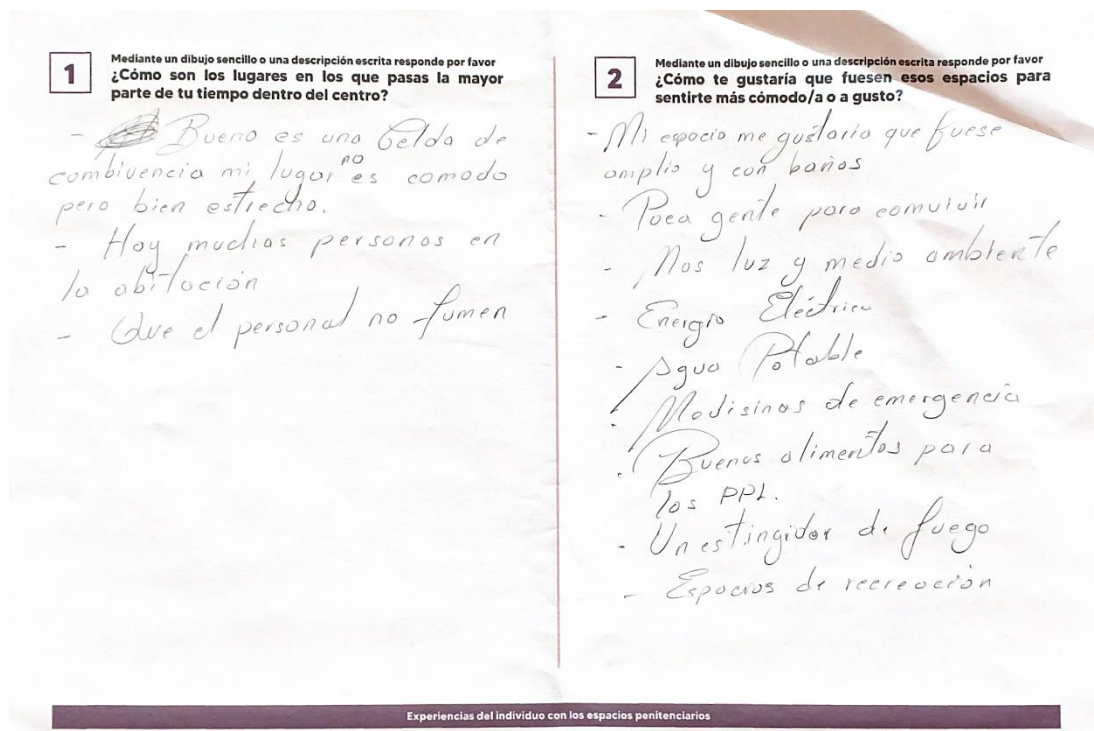 1
Mediante un dibujo sencillo o una descripción escrita responde por favor
¿Cómo son los lugares en los que pasas la mayor
parte de tu tiempo dentro del centro?
- Bueno es una Celda de
combivencia mi lugar no es comodo
pero bien estrecho.
- Hay muchas personas en
la abitación
- Que el personal no fumen
2
Mediante un dibujo sencillo o una descripción escrita responde por favor
¿Cómo te gustaría que fuesen esos espacios para
sentirte más cómodo/a o a gusto?
- Mi espacio me gustaria que fuese
amplio y con baños
- Poca gente para comvivir
- Mas luz y medio ambiente
- Energia Eléctrica
- Agua Potable
- Medisinas de emergencia
- Buenos alimentos para
los PPL.
- Un estingidor de fuego
- Espacios de recreación
Experiencias del individuo con los espacios penitenciarios